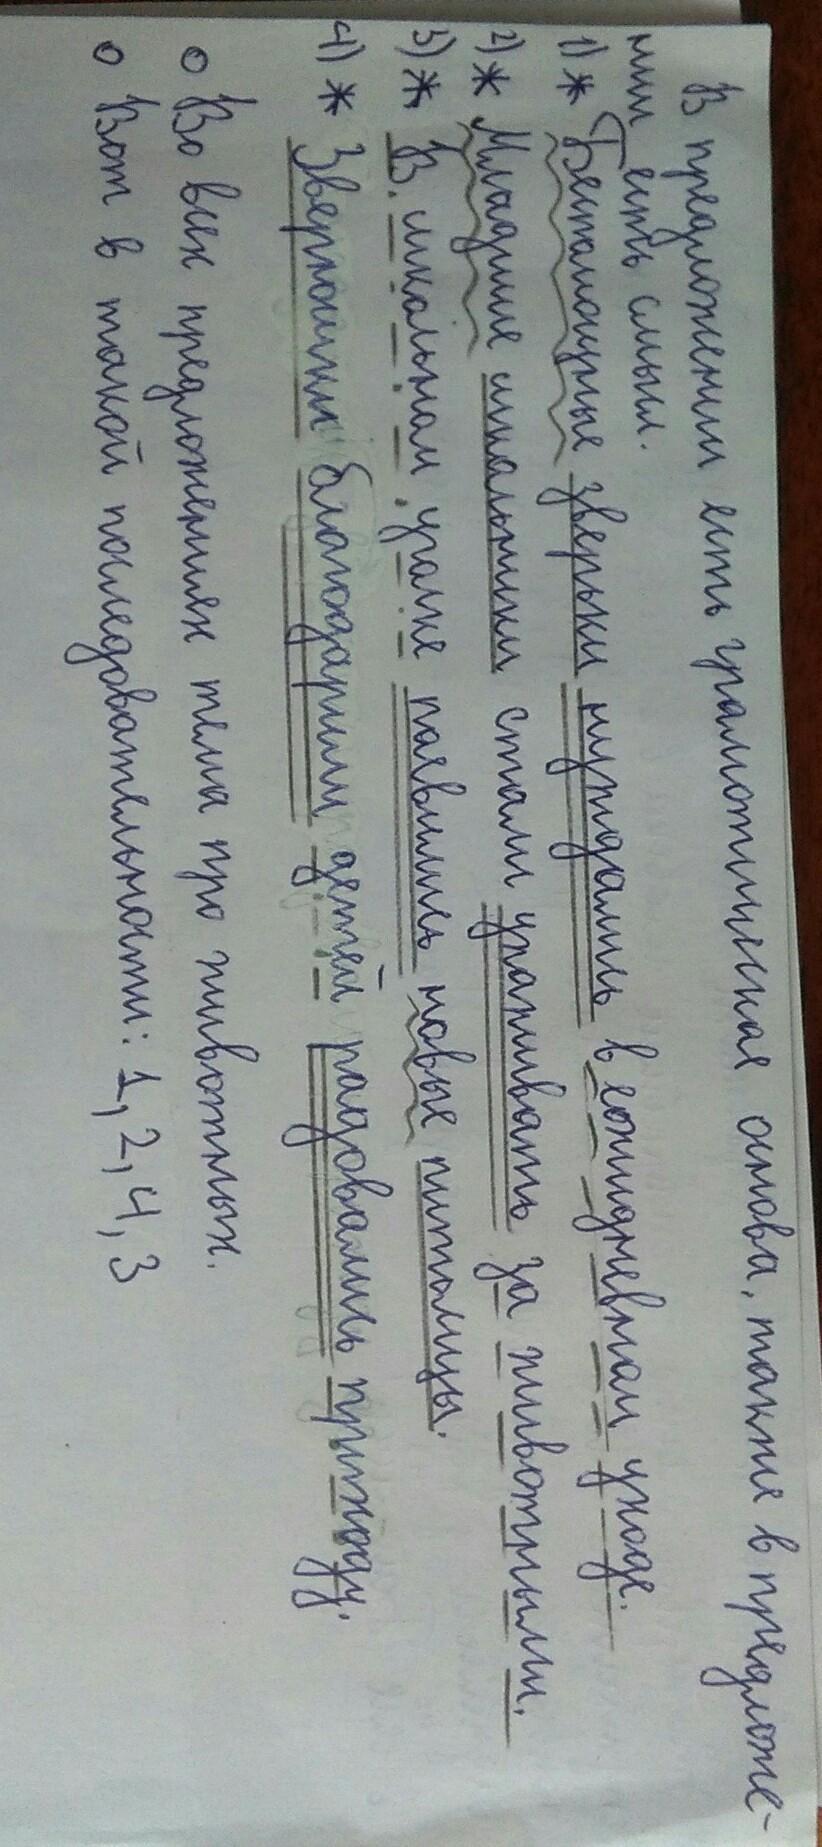 В предложении есть грамотическая основа, также в предложе-
нии есть смысл.
1) * Беспомощные зверьки нуждались в ежидневном уходе.
2) * Младшие школьники стали ухаживать за животными.
3) * В школьном уголке паевились новые питомцы.
4) * Зверюшки благодарили детей радовались приходу.
о Во всех предложениях тема про животных.
о Вот в такой последовательности: 1, 2, 4, 3